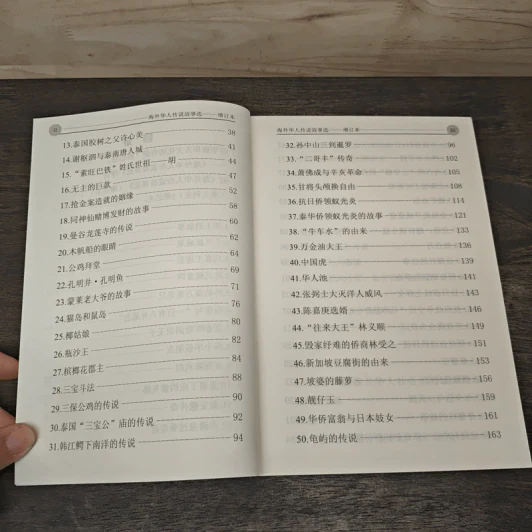 海外华人传说故事选——增订本
13.泰国胶树之父许心美 38
14.谢枢泗与泰南唐人城 41
15.“素旺巴铁”姓氏世祖——胡 44
16.无主的巨款 47
17.抢金案造就的姻缘 52
18.同神仙赌博发财的故事 58
19.曼谷龙莲寺的传说 60
20.木帆船的眼睛 62
21.公鸡拜堂 64
22.孔明井·孔明鱼 69
23.蒙莱老大爷的故事 71
24.猫岛和鼠岛 76
25.椰姑娘 80
26.瓶沙王 82
27.槟榔花郡主 84
28.三宝斗法 88
29.三保公鸡的传说 90
30.泰国“三宝公”庙的传说 92
31.韩江鳄下南洋的传说 94
海外华人传说故事选——增订本
32.孙中山三到暹罗 96
33.“二哥丰”传奇 102
34.萧佛成与辛亥革命 105
35.甘将头颅换自由 108
36.抗日侨领蚁光炎 114
37.泰华侨领蚁光炎的故事 121
38.“牛车水”的由来 133
39.万金油大王 136
40.中国虎 139
41.华人池 141
42.张弼士大灭洋人威风 143
43.陈嘉庚选婿 146
44.“往来大王”林义顺 149
45.毁家纾难的侨商林受之 151
46.新加坡豆腐街的由来
47.坡婆的藤箩 156
48.靓仔玉 159
49.华侨富翁与日本妓女 161
50.龟屿的传说 163